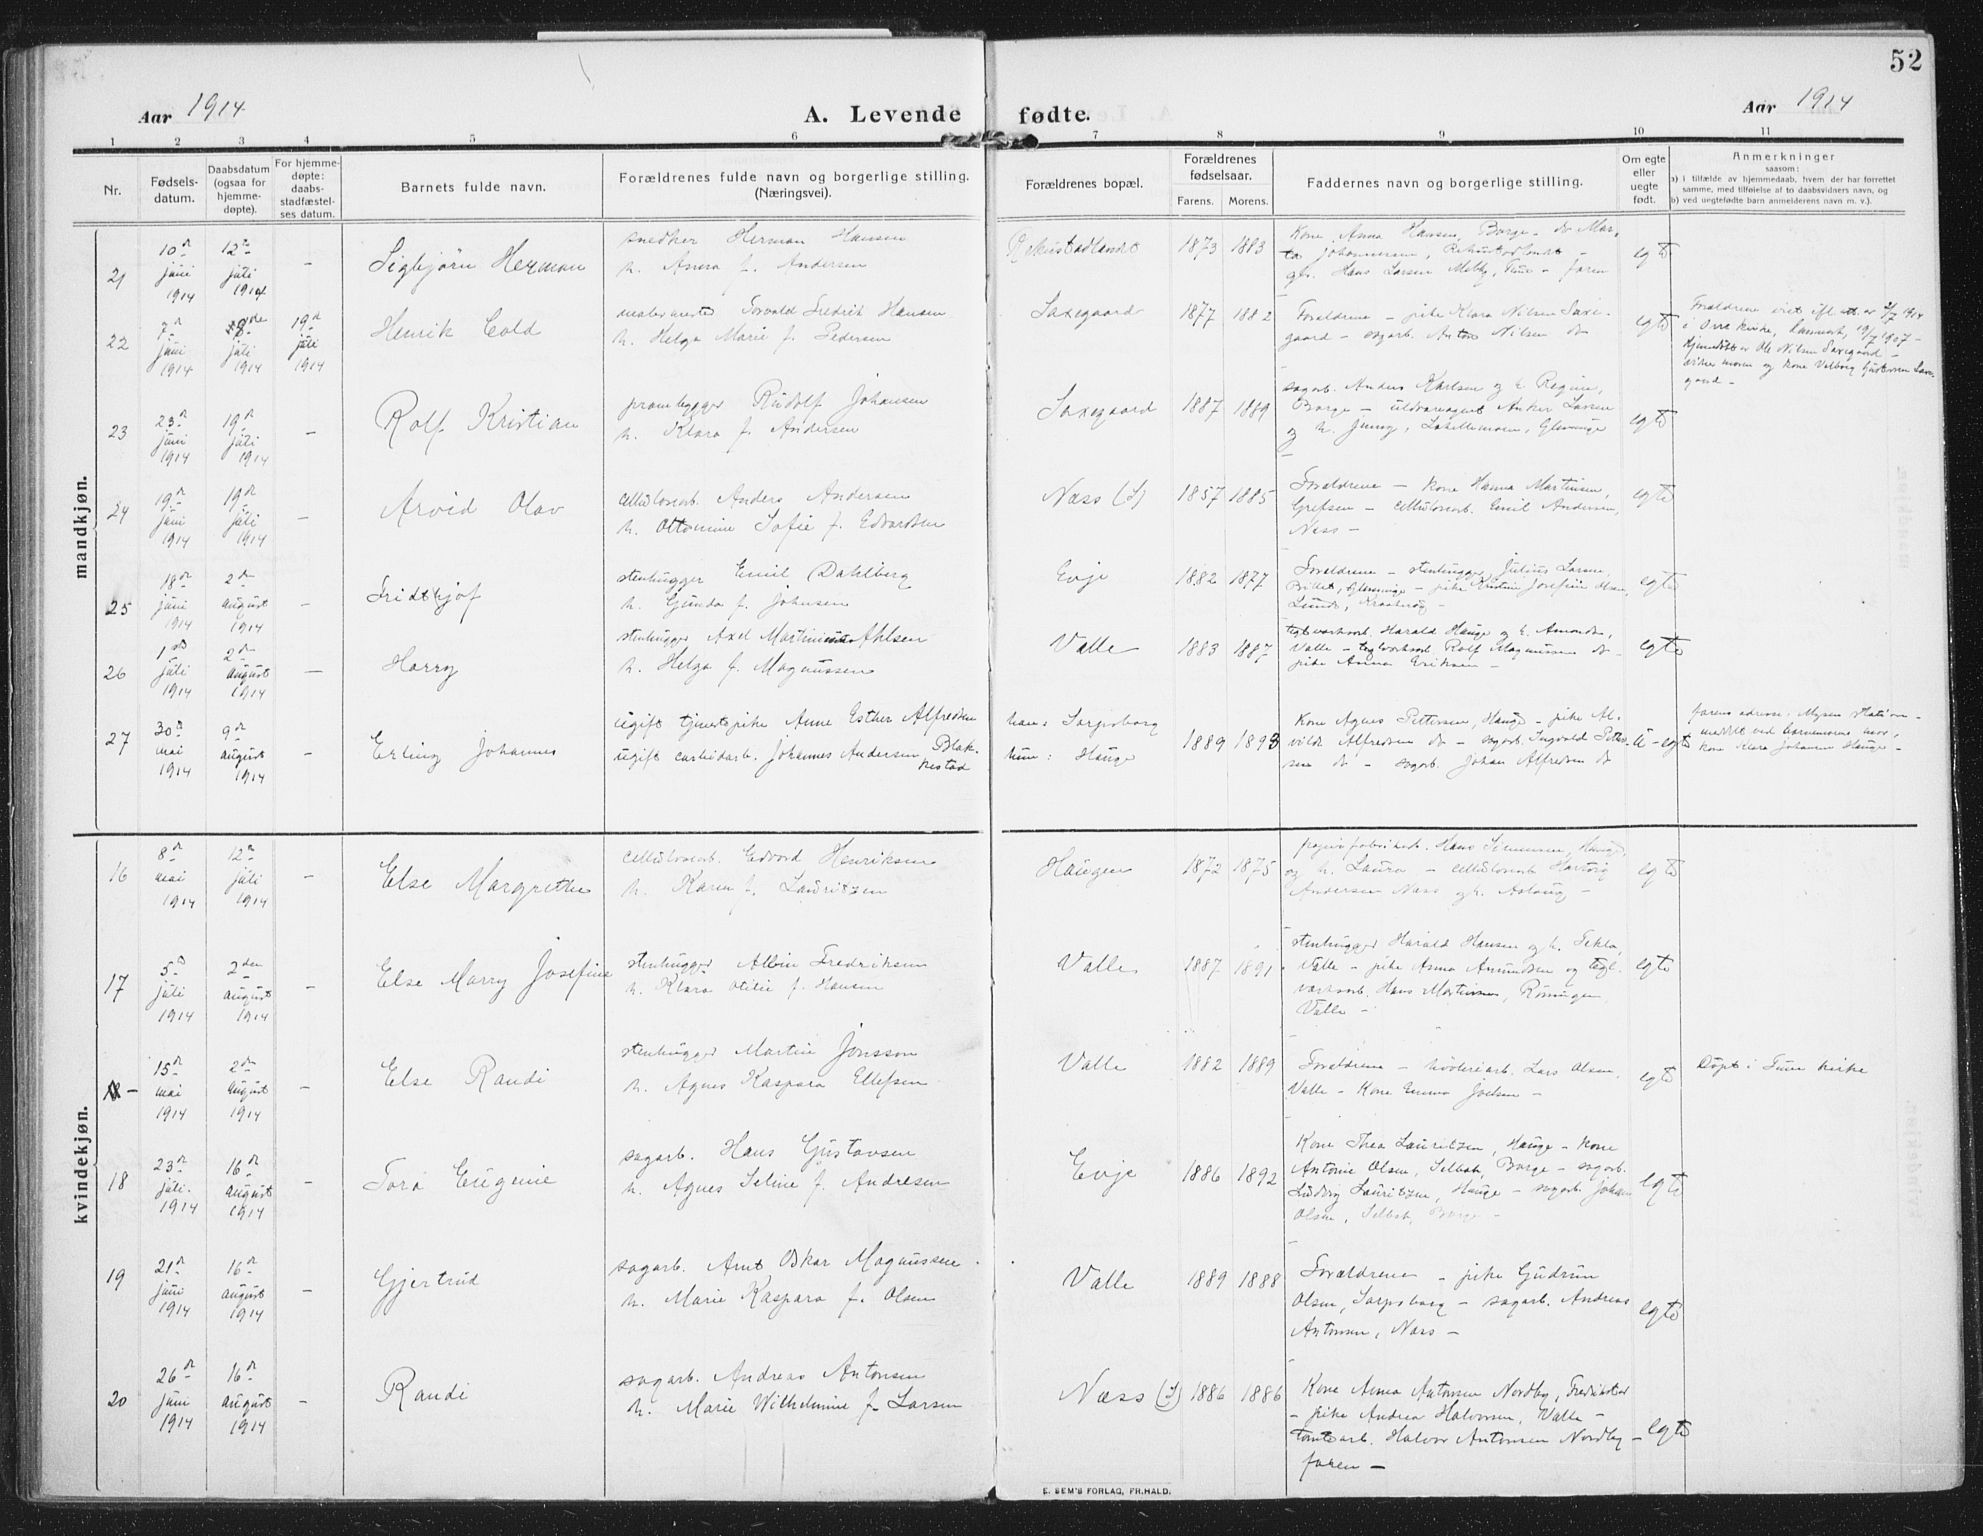 52
Aar 1914
A. Levende fødte.
Aar 1914
1 2 3 4 5 6 7 8 9 10 11
Nr.
Fødsels-
datum.
Daabsdatum
(ogsaa for
hjemme-
døpte).
For hjemme-
døpte:
daabs-
stadfæstel-
ses datum.
Barnets fulde navn.
Forældrenes fulde navn og borgerlige stilling.
(Næringsvei).
Forældrenes bopæl.
Forældrenes
fødselsaar.
Farens. Morens.
Faddernes navn og borgerlige stilling.
Om egte
eller
uegte
født.
Anmerkninger
saasom:
a) i tilfælde av hjemmedaab, hvem der har forrettet
samme, med tilføielse af to daabsvidners navn, og
b) ved uegtefødte barn anmelderens navn m. v.).
mandkjøn.
21
10de
juni
1914
12te
juli
1914
–
Sigbjørn Herman
snedker Herman Hansen
h. Anna f. Andersen
1873 1883
Kone Anna Hansen, Borge – do Mar-
ta Johannesen,
gbr. Hans Larsen Melby, Tune – faren
egte
22
7de
juni
1914
8de
juli
1914
19de
juli
1914
Henrik Cold
malermester Torvald Fredrik Hansen
h. Helga Marie f. Pedersen
Saxegaard
1877 1882
Forældrene – pike Klara Nilsen Saxe-
gaard – sagarb. Anton Nilsen do
egte
Forældrene viet ifl. att. av
kirke, 19/7 1907 –
Ole Nilsen Saxegaard –
moren og kone Valborg Gustavsen Saxe-
gaard –
23
23de
juni
1914
19de
juli
1914
–
Rolf Kristian
prambygger Rudolf Johansen
h. Klara f. Andersen
Saxegaard
1887 1889
sagarb. Anders Karlsen og h. Regine,
Borge – uldvareagent Anker Larsen
og h. Jenny, Glemminge
–
egte
24
19de
juni
1914
19de
juli
1914
–
Arvid Olav
cellulosearb. Anders Andersen
h. Ottomine Sofie f. Edvardsen
Næss (S)
1857 1885
Forældrene – kone Hanna Martinsen,
Grefsen – cellulosearb. Emil Andersen,
Næss –
egte
25
18de
juni
1914
2den
august
1914
–
Fridthjof
stenhugger Emil Dahlberg
h. Gunda f. Johnsen
Evje
1882 1877
Forældrene – stenhugger Julius Larsen,
Glemminge – pike Kristine Josefine Olsen,
Lunde, Kraakerøy –
egte
26
1ste
juli
1914
2den
august
1914
–
Harry
stenhugger Axel Martinius Ahlsen
h. Helga f. Magnussen
Valle
1883 1887
teglverksarb. Harald Hauge og h. Amanda,
Valle – teglverksarb Rolf Magnussen do –
pike Anna Eriksen –
egte
27
30te
mai
1914
9de
august
1914
–
Erling Johannes
ugift tjenestepike Anne Esther Alfredsen
ugift carbidarb. Johannes Andersen Blak-
kestad
han: Sarpsborg
hun: Hauge
1889 1893
Kone Agnes Pettersen, Hauge – pike Al-
vilde Alfredsen do – sagarb. Ingvald Petter-
sen do – sagarb. Johan Alfredsen do
u-egte
farens adresse: Mysen station –
meldt ved barnemorens mor,
kone Klara Johanne Hauge –
kvindekjøn.
16
8de
mai
1914
12te
juli
1914
–
Else Margrethe
cellulosearb. Edvard Henriksen
h. Karen f. Lauritzen
Haugen
1872 1875
papirfabrikarb. Hans Simensen, Hauge,
og h. Laura – cellulosearb Hartvig
Andersen Næss og h. Aslaug –
egte
17
5te
juli
1914
2den
august
1914
–
Else Marry Josefine
stenhugger Albin Fredriksen
h. Klara Otilie f. Hansen
Valle
1887 1891
stenhugger Harald Hansen og h. Tekla,
Valle – pike Anna Amundsen og tegl-
verksarb. Hans Martinsen, Røningen
Valle –
egte
18 –
15de
mai
1914
2den
august
1914
–
Else Randi
stenhugger Martin Jonsson
h. Agnes Kaspara Ellefsen
Valle
1882 1889
–
Forældrene – høvleriarb. Lars Olsen,
Valle – Kone Emma Joelsen –
egte
Døpt i Tune kirke
18
23de
juli
1914
16de
august
1914
–
Tora Eugenie
sagarb. Hans Gustavsen
h. Agnes Seline f. Andresen
Evje
1886 1892
Kone Thea Lauritzen, Hauge – kone
Antonie Olsen, Selbak, Borge – sagarb.
Ludvig Lauritzen, Hauge – sagarb. Johan
Olsen, Selbak, Borge –
egte
19
21de
juni
1914
16de
august
1914
–
Gjertrud
sagarb. Arnt Oskar Magnussen
h. Marie Kaspara f. Olsen
Valle
1889 1888
Forældrene – pike Gudrun
Olsen, Sarpsborg – sagarb. Andreas
Antonsen, Næss –
egte
20
26de
juni
1914
16de
august
1914
–
Randi
sagarb. Andreas Antonsen
h. Marie Wilhelmine f. Larsen
Næss (S)
1886 1886
Kone Anna Antonsen Nordby, Fredrikstad
– pike Andrea Halvorsen, Valle –
tomtearb. Halvor Antonsen Nordby –
faren –
egte
E. SEM'S FORLAG, FR.HALD.